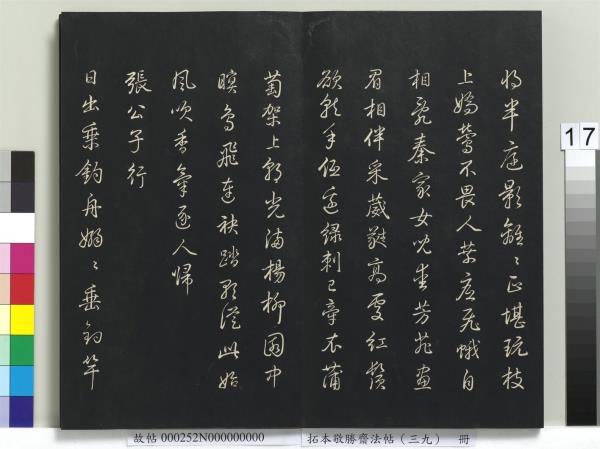 將半庭影離〻正堪玩枝
上嬌鶯不畏人葉底飛蛾自
相亂秦家女兒愛芳菲畫
眉相伴采葳蕤高處紅鬚
欲就手低邊綠刺已牽衣蒲
萄架上朝光滿楊柳園中
暝鳥飛連袂踏歌從此始
風吹香氣逐人歸
張公子行
日出乘釣舟嫋〻垂釣竿
17
故帖 000252N000000000 拓本敬勝齋法帖（三九） 冊